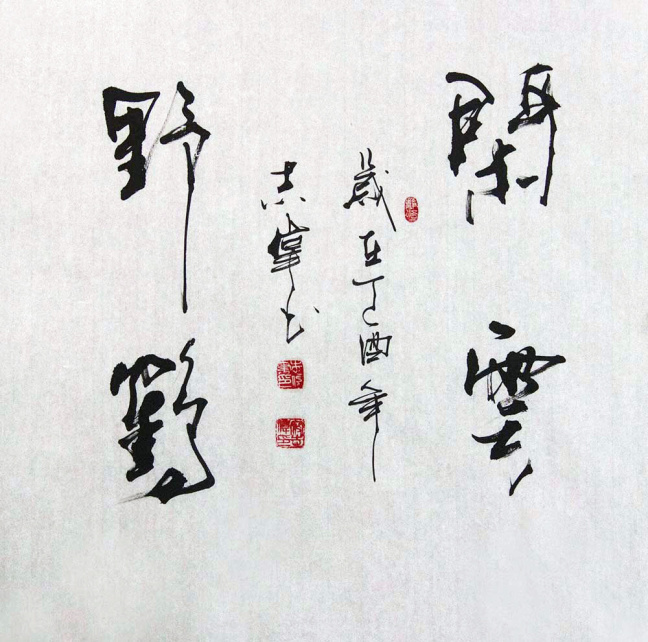 閑雲
野鶴
歲在丁酉年
志偉书